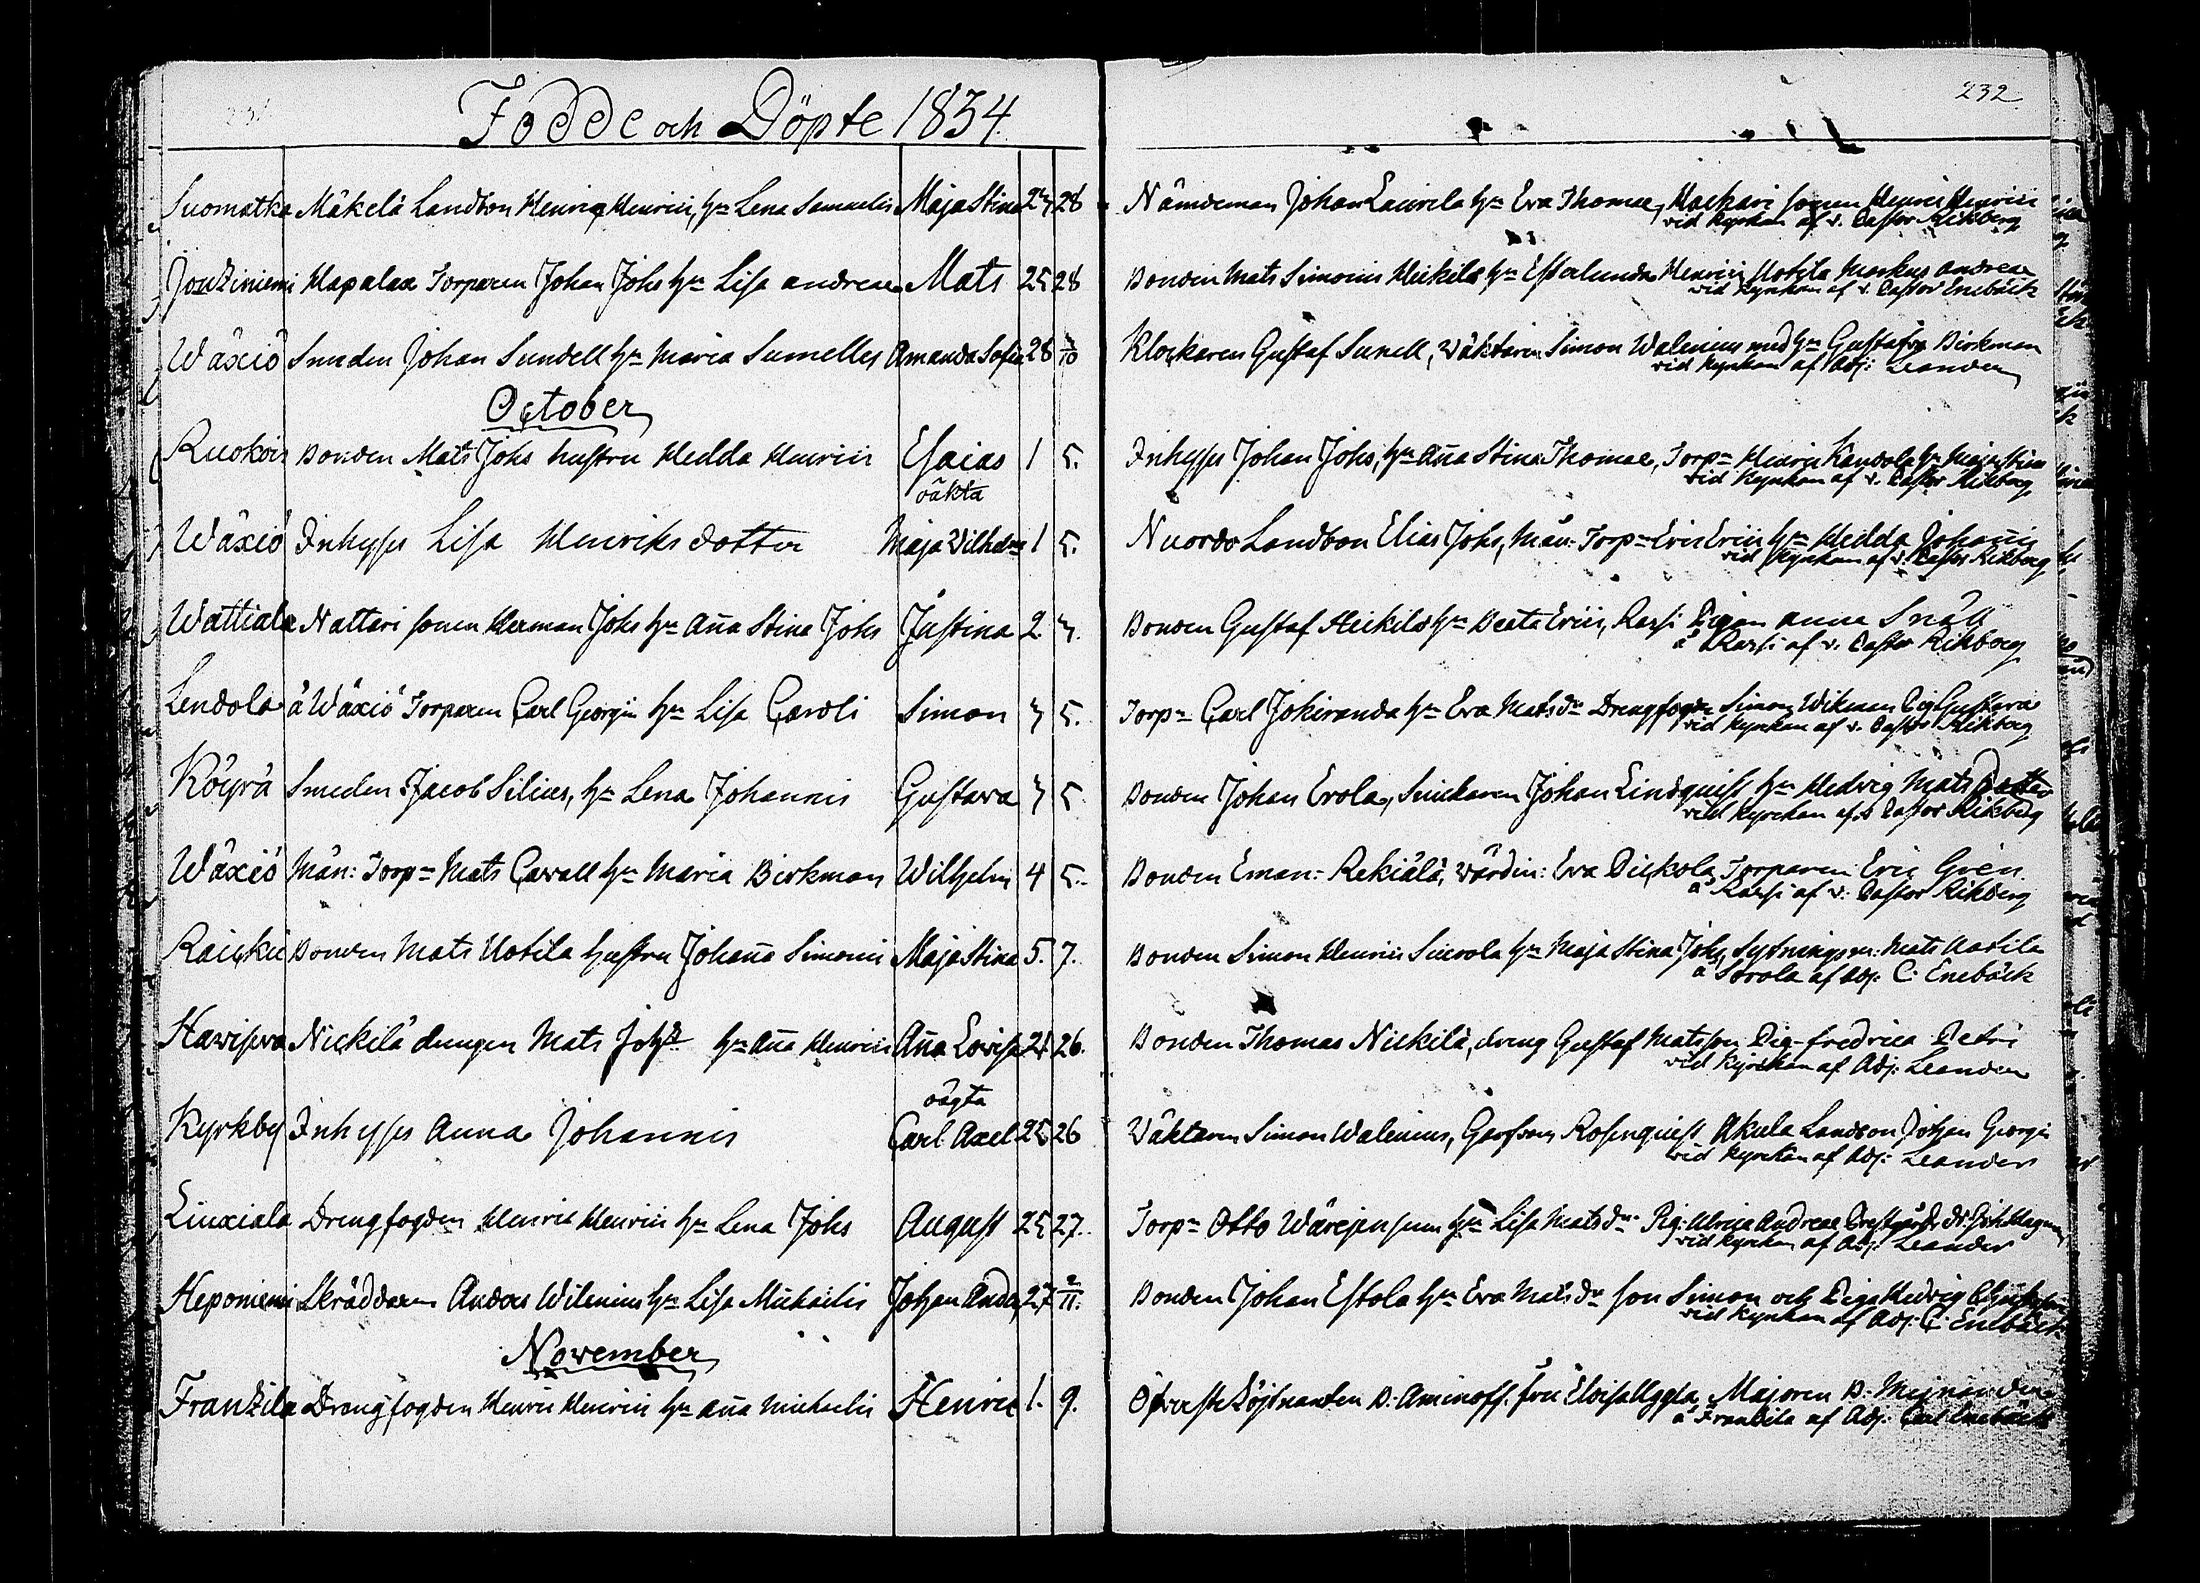 Födde och Döpte 1834.
232
Suomatka Mäkelä Landbon Henric Henrici, hu Lena Samuelis Maja Stina 24 28 Nämdeman Johan Laurila hu Eva Thomae, Henric Henrici
vid kyrkan af v. Pastor Rikberg
Jouziniemi Hapalax Torparen Johan Johs hu Lisa andreae Mats 25 28 Bonden Mats Simonis Heikilä hu Henrici Uotila Markus andreae
vid kyrkan af v. Pastor Enebäck
Wäxiö Smeden Johan Sundell hu Maria Amanda Sofia 28 Klockaren Gustaf Sunell, Wäktaren Simon Walenius med hu Gustafva Birkman
vid kyrkan af Adj: Leander
October
Ruokois Bonden Mats Johs hustru Hedda Henrici Esaias 1 5. Inhyses Johan Johs, hu Aña Stina Thomae, Torp= Henric Kandola hu Maja Stina
vid kyrkan af v. Pastor Rikberg
oäkta
Wäxiö Inhyses Lisa Henriks dotter Maja Wilhelm 1 5. Nuordo Landbon Elias Johs, Mån: Torp= Eric Erici hu Hedda Johañis
vid kyrkan af v. Pastor Rikberg
Wattiala Nattari sonen Herman Johs hu Aña Stina Johs Justina 2 Bonden Gustaf Heikilä hu Beata Erici, Rassi Pigan anna Snäll
å Rassi af v. Pastor Rikberg
Lendola å Wäxiö Torparen Carl Georgii hu Lisa Caroli Simon 3 5. Torp= Carl Jokiranda hu Eva Matsdr Drengfogden Simon Wikman Pig Gustava
vid kyrkan af v. Pastor Rikberg
Köyrä Smeden Jacob Silius, hu Lena Johannis Gustava 3 5. Bonden Johan Erola, Snickaren Johan Lindquist hu Hedvig Mats Dotter
vid kyrckan af v Pastor Rikberg
Wäxiö Mån: Torp= Mats Cavall hu Maria Birkman Wilhelm 4 5. Bonden Eman= Rekiälä, wärdin: Eva Torparen Eric Grén
å Rassi af v: Pastor Rikberg
Raickii Bonden Mats Uotila hustru Johaña Simonis Maja Stina 5. 7. Bonden Simon Henrici Suovola hu Maja Stina Johs, Sytningsm: Mats Uotila
å Sorola af Adj: C. Enebäck
Hawisewa Nickilä drengen Mats Johs hu Aña Henrici Aña Lovisa 26. Bonden Thomas Nickilä, dreng Gustaf Matsson Pig. fredrica Petri
vid kyrckan af Adj: Leander
oägta
Kyrkby Inhyses Anna Johannis Carl Axel 25 26 Wäktaren Simon Walenius, Garfvare Rosenquist Akula Landbon Johan Georgii
vid kyrckan af Adj: Leander
Liuxiala Drengfogden Henric Henrici hu Lena Johs August 25 27. Torp= Otto hu Lisa Matsdr Pig: Ulrica Andreae
vid kyrckan af Adj: Leander
Heponiemi Skräddaren Anders Wilenius hu Lisa Michaelis Johan Anders 27 2/11. Bonden Johan Estola hu Eva Matsdr son Simon och Pigan Hedvig
vid kyrckan af Adj: C. Enebäck
November
Franzila Drengfogden Henric Henrici hu Aña michaelis Henric 1. 9. B: Aminoff. fru Elvisa Uggla Majoren
å Franzila af Adj: Carl Enebäck